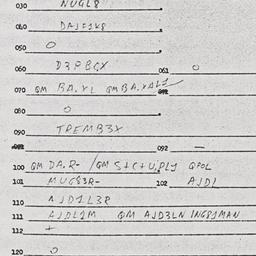 030 NUGL8
040
050 O
060 D3PBGX 061 O
070 QM BA.YL QMBA.YAL
080 O
090 TPEMB3X
092 —
100 QM DA.R- /QM S+C+U.PLY QPOL
101 MUG83R- 102 AJDL
110 AJD1L3R
111 AJDL1M QM AJD3LN ING81MAN
112 +
120 O